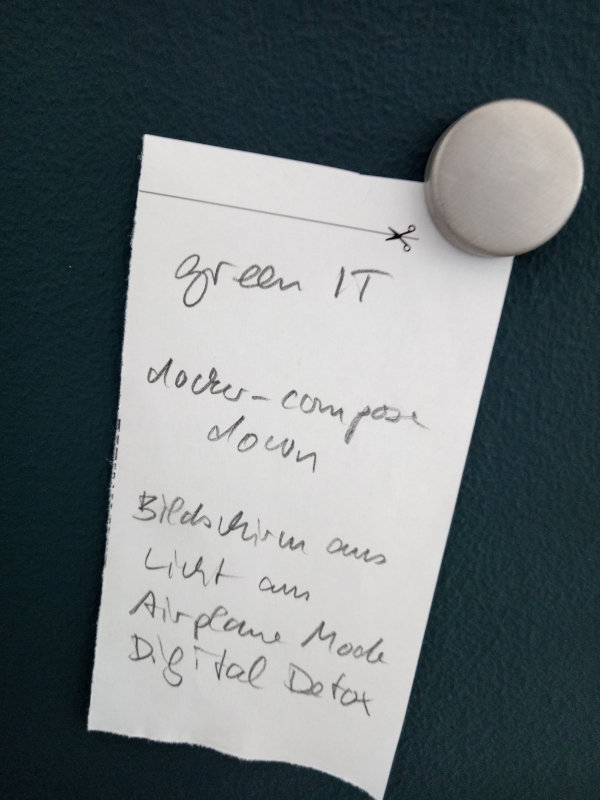 green IT
docker-compose
down
Bildschirm aus
Licht
Airplane Mode
Digital Detox